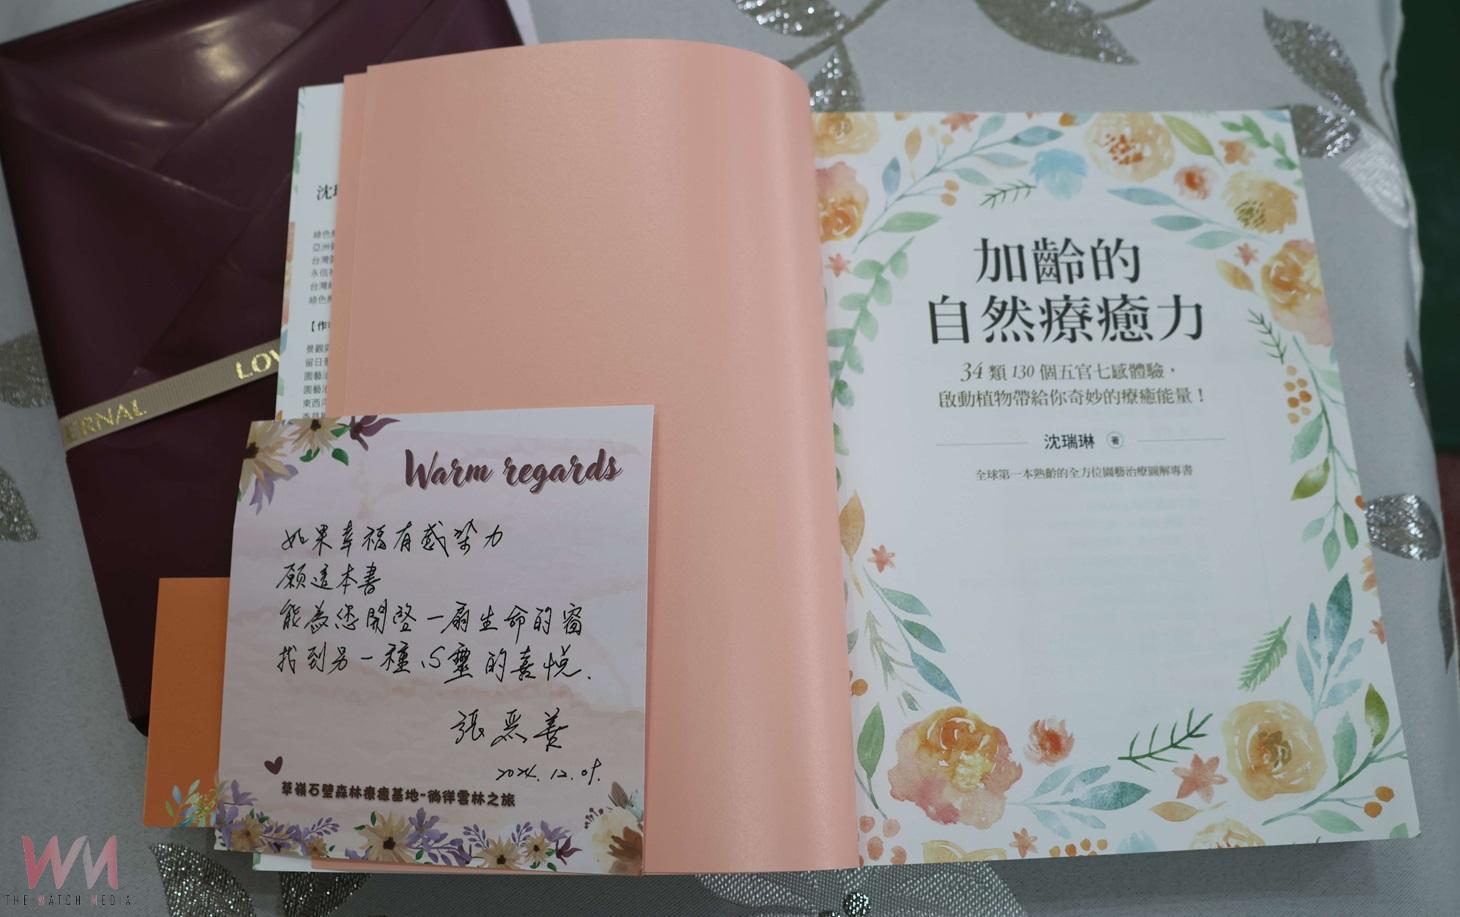 LOV
ERNAL
沈瑞
綠色
亞洲
台灣
永信
台灣
綠色
【作
景觀
留日
園藝
園藝
東西
Warm regards
如果幸福有感染力
願這本書
能為您開啓一扇生命的窗
找到另一種心靈的喜悅.
張
善
2024.12.09.
草嶺石壁森林療癒基地-徜徉雲林之旅
加齡的
自然療癒力
34 類 130 個五官七感體驗，
啟動植物帶給你奇妙的療癒能量！
沈瑞琳 著
全球第一本熟齡的全方位園藝治療圖解專書
WM
THE WATCH MEDIA